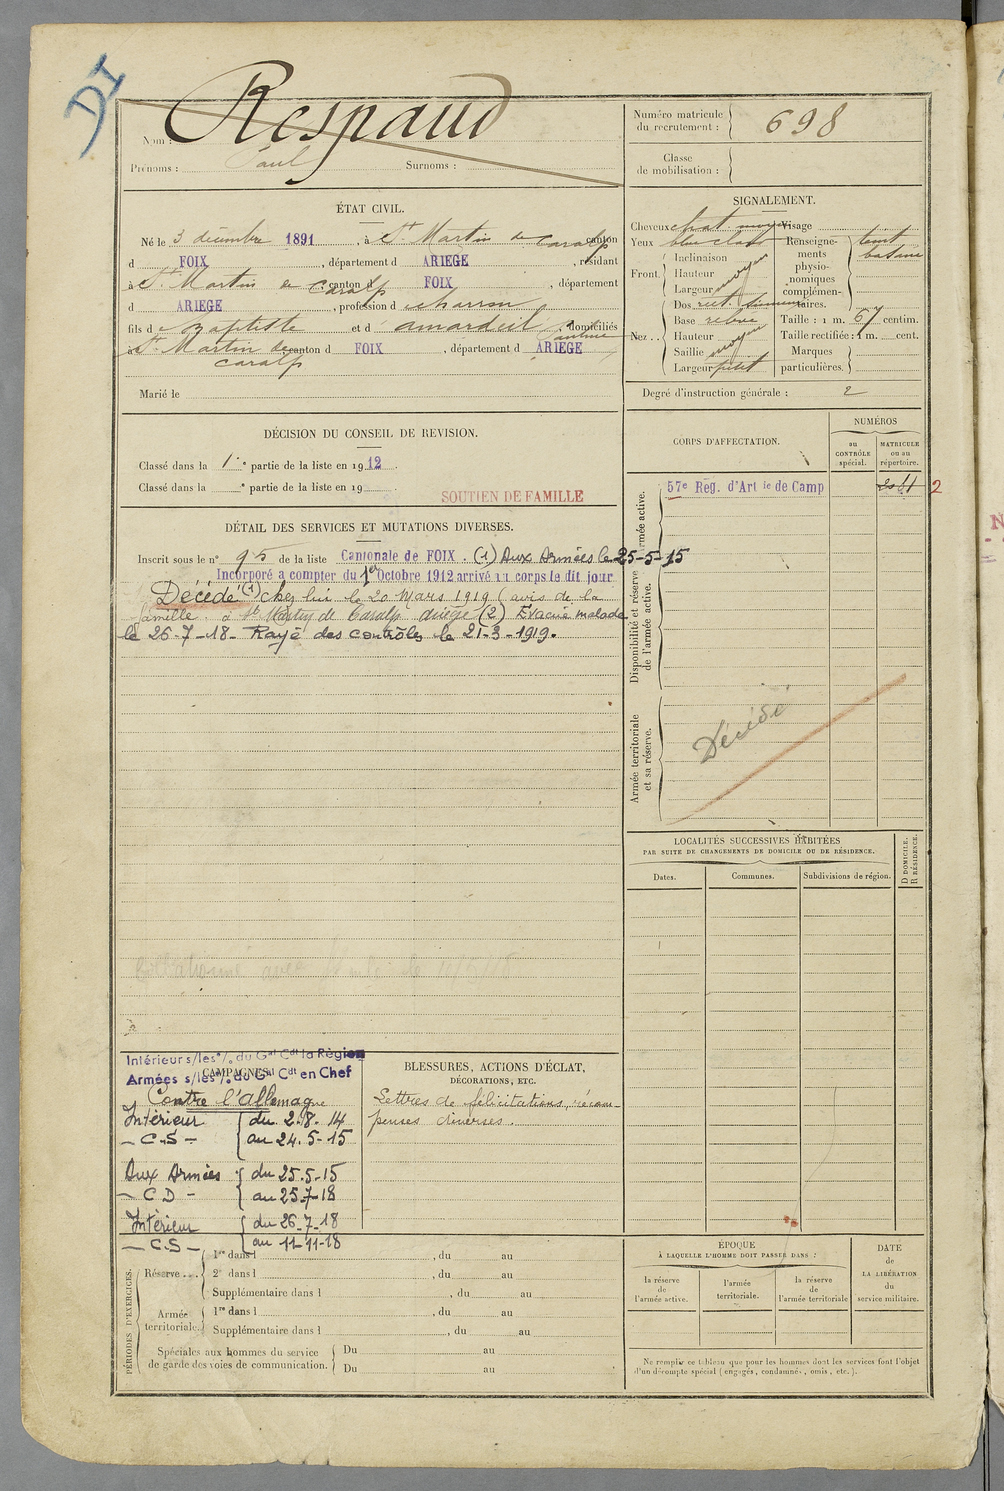 DI
Nom : Respaud
Prénoms : Paul Surnoms :
Numéro matricule du recrutement : 698
Classe de mobilisation :
ÉTAT CIVIL.
Né le 3 décembre 1891, à St Martin de Caralp canton
d FOIX, département d ARIEGE, résidant
à St Martin de Caralp canton d FOIX, département
d ARIEGE, profession d charron
fils de Baptiste et d' amardeil Antoinette, domiciliés
St Martin de caralp canton d FOIX, département d ARIEGE
Marié le
SIGNALEMENT.
Cheveux chat. moyen Visage
Yeux bleu clair Renseignements physionomiques complémentaires. teint basané
Front. Inclinaison
Hauteur
Largeur moyen
Dos rect. sinueux
Nez... Base relevé Taille : 1 m. 67 centim.
Hauteur Taille rectifiée : 1 m. cent.
Saillie moyen Marques
Largeur petit particulières.
Degré d'instruction générale : 2
DÉCISION DU CONSEIL DE REVISION.
Classé dans la 1re partie de la liste en 1912.
Classé dans la e partie de la liste en 19
SOUTIEN DE FAMILLE
CORPS D'AFFECTATION.
NUMÉROS
au CONTRÔLE spécial.
MATRICULE ou au répertoire.
Armée active.
57e Rég. d'Art ie de Camp 2
DÉTAIL DES SERVICES ET MUTATIONS DIVERSES.
Inscrit sous le n° 95 de la liste Cantonale de FOIX. (1) Aux Armées le 25-5-15
Incorporé à compter du 1er Octobre 1912 arrivé au corps le dit jour
Décédé (1) chez lui le 20 Mars 1919 (avis de la
famille. à St Martin de Caralp ariège (2) Evacué malade
le 26-7-18 - Rayé des contrôles le 21-3-1919.
Disponibilité et réserve de l'armée active.
Armée territoriale et sa réserve.
Décédé
LOCALITÉS SUCCESSIVES HABITÉES
PAR SUITE DE CHANGEMENTS DE DOMICILE OU DE RÉSIDENCE.
D DOMICILE. R RÉSIDENCE.
Dates. Communes. Subdivisions de région.
Intérieur s/les °/. du Gal Cdt la Région
CAMPAGNES.
Armées s/les °/. du Gal Cdt en Chef
Contre l'allemagne
Intérieur du 2.8.14
- C.S - au 24.5-15
Aux Armées du 25.5-15
- C D - au 25.7-18
Intérieur du 26-7-18
- C.S - au 11-11-18
BLESSURES, ACTIONS D'ÉCLAT,
DÉCORATIONS, ETC.
Lettres de félicitations, récom-
penses diverses.
PÉRIODES D'EXERCICES.
Réserve... 1re dans l , du au
2e dans l , du au
Supplémentaire dans l , du au
Armée territoriale. 1re dans l , du au
Supplémentaire dans l , du au
Spéciales aux hommes du service Du au
de garde des voies de communication. Du au
ÉPOQUE
À LAQUELLE L'HOMME DOIT PASSER DANS :
la réserve de l'armée active.
l'armée territoriale.
la réserve de l'armée territoriale
DATE de LA LIBÉRATION du service militaire.
Ne remplir ce tableau que pour les hommes dont les services font l'objet
d'un décompte spécial (engagés, condamnés, omis, etc.).